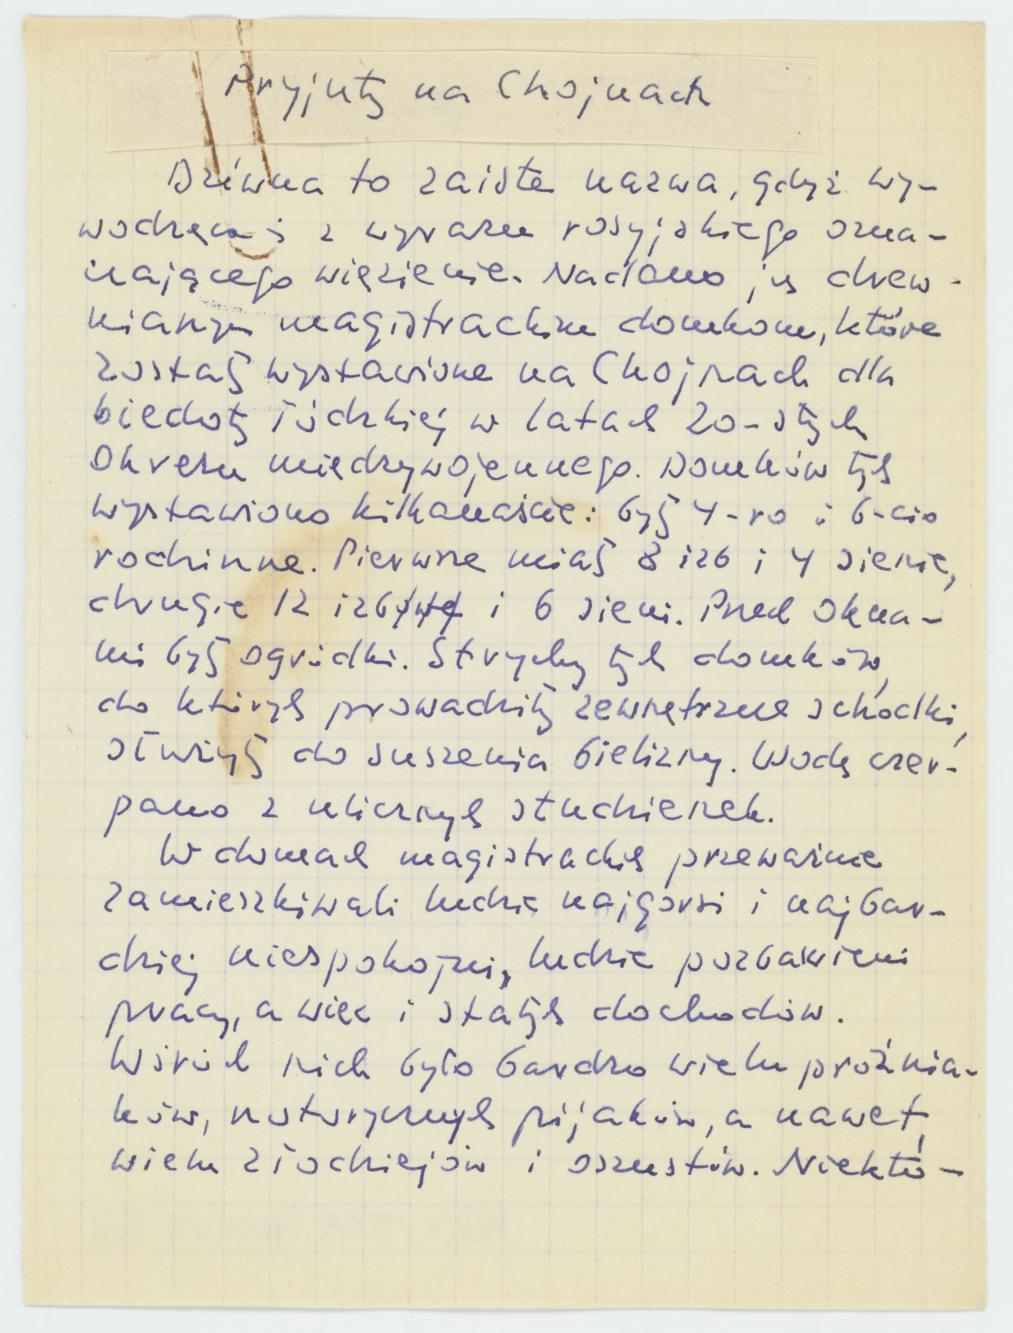 Pryjuty na Chojnach
Dziwna to zaiste nazwa, gdyż wy-
wodząca się z wyrazu rosyjskiego ozna-
czającego więzienie. Nadano ją drew-
nianym magistrackim domkom, które
zostały wystawione na Chojnach dla
biedoty łódzkiej w latach 20-stych
okresu międzywojennego. Domków tych
wystawiono kilkanaście: były 4-ro i 6-cio
rodzinne. Pierwsze miały 8 izb i 4 sienie,
drugie 12 izb i 6 sieni. Przed okna-
mi były ogródki. Strychy tych domków,
do których prowadziły zewnętrzne schodki,
służyły do suszenia bielizny. Wodę czer-
pano z ulicznych studzienek.
W domach magistrackich przeważnie
zamieszkiwali ludzie najgorsi i najbar-
dziej niespokojni, ludzie pozbawieni
pracy, a więc i stałych dochodów.
Wśród nich było bardzo wielu próżnia-
ków, notorycznych pijaków, a nawet
wielu złodziejów i oszustów. Niektó-